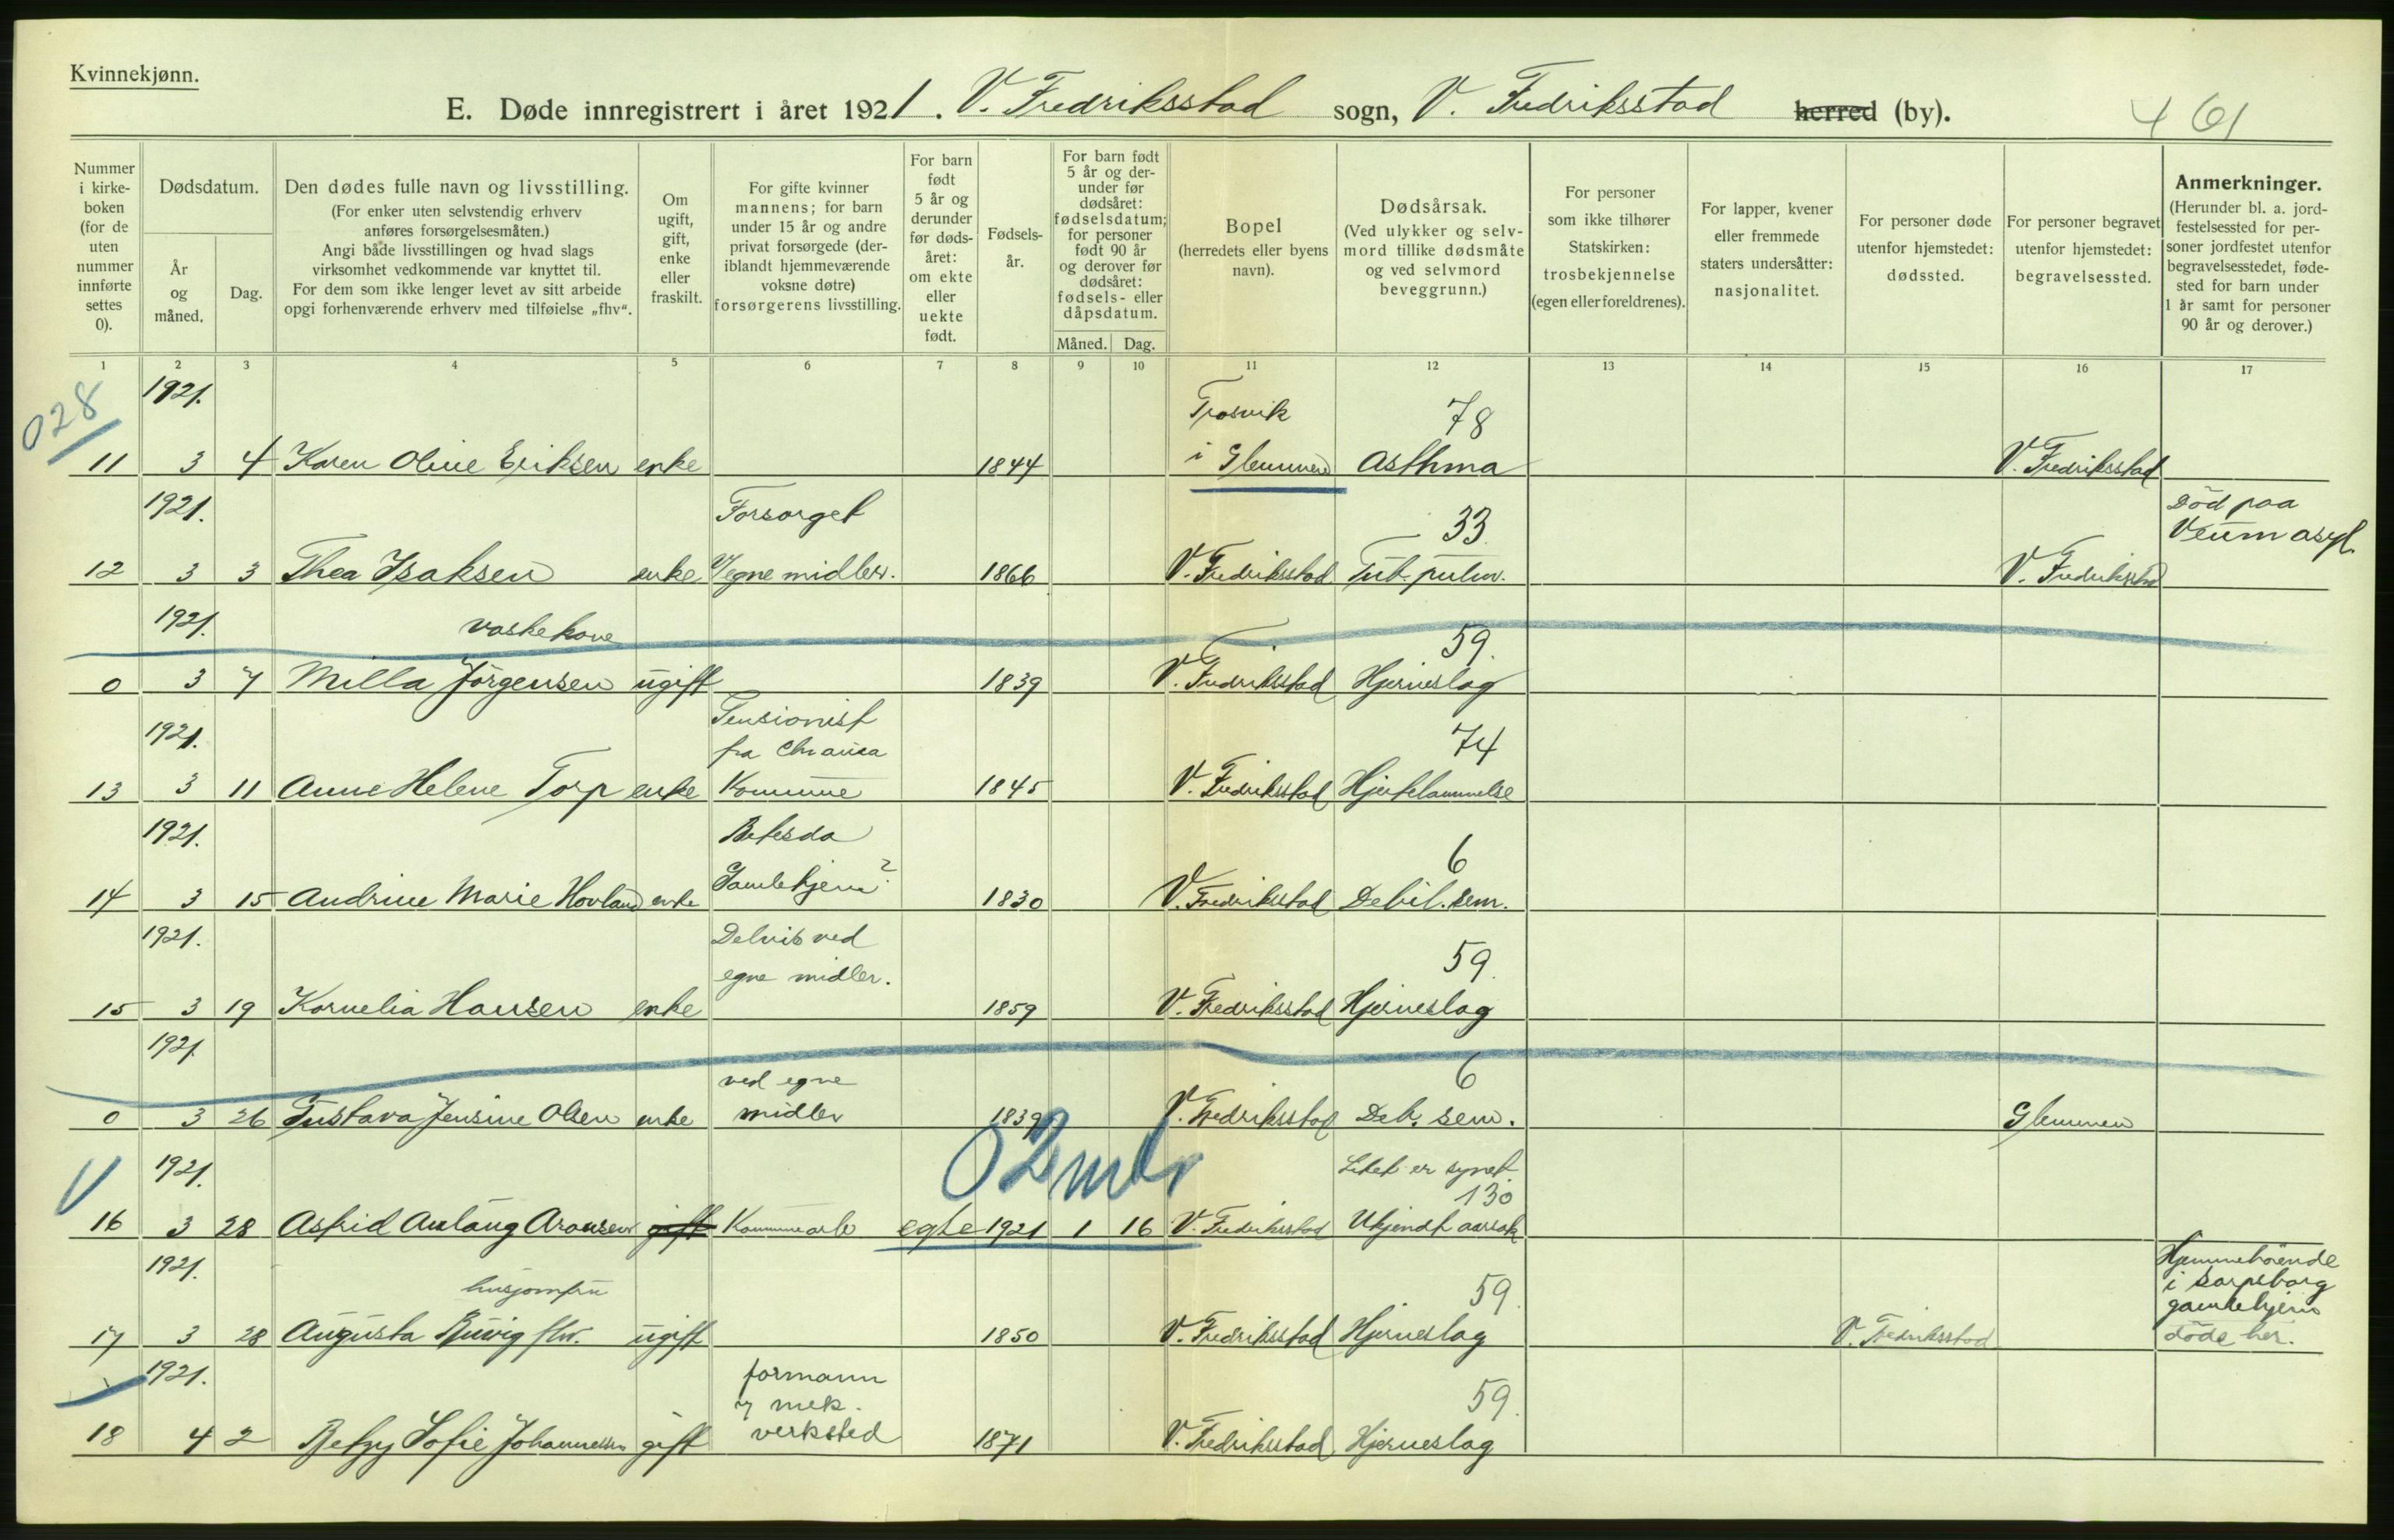 Kvinnekjønn.
E. Døde innregistrert i året 1921. V. Fredriksstad sogn, V. Fredriksstad herred (by).
461
Nummer i kirke-boken (for de uten nummer innførte settes 0).
Dødsdatum.
År og måned.
Dag.
Den dødes fulle navn og livsstilling.
(For enker uten selvstendig erhverv anføres forsørgelsesmåten.)
Angi både livsstillingen og hvad slags virksomhet vedkommende var knyttet til.
For dem som ikke lenger levet av sitt arbeide opgi forhenværende erhverv med tilføielse „fhv“.
Om ugift, gift, enke eller fraskilt.
For gifte kvinner mannens; for barn under 15 år og andre privat forsørgede (der-iblandt hjemmeværende voksne døtre) forsørgerens livsstilling.
For barn født 5 år og derunder før døds-året: om ekte eller uekte født.
Fødsels-år.
For barn født 5 år og der-under før dødsåret: fødselsdatum; for personer født 90 år og derover før dødsåret: fødsels- eller dåpsdatum.
Måned. Dag.
Bopel (herredets eller byens navn).
Dødsårsak. (Ved ulykker og selv-mord tillike dødsmåte og ved selvmord beveggrunn.)
For personer som ikke tilhører Statskirken: trosbekjennelse (egen eller foreldrenes).
For lapper, kvener eller fremmede staters undersåtter: nasjonalitet.
For personer døde utenfor hjemstedet: dødssted.
For personer begravet utenfor hjemstedet: begravelsessted.
Anmerkninger. (Herunder bl. a. jord-festelsessted for per-soner jordfestet utenfor begravelsesstedet, føde-sted for barn under 1 år samt for personer 90 år og derover.)
1 2 3 4 5 6 7 8 9 10 11 12 13 14 15 16 17
028
1921. Trosvik 78
11 3 4 Karen Oline Eriksen enke 1844 i Glemmen Asthma V. Fredriksstad
1921. Forsørget 33. Död paa Veum asyl.
12 3 3 Thea Isaksen enke v/ egne midler. 1866 V. Fredriksstad Tub. pulm. V. Fredriksstad
1921. vaskekone 59.
0 3 7 Milla Jörgensen ugift 1839 V. Fredriksstad Hjerneslag
1921. Pensionist fra Chrania 74
13 3 11 Anne Helene Torp enke Kommune 1845 V. Fredriksstad Hjertelammelse
1921. Betesda 6
14 3 15 Andrine Marie Hovland enke Gamlehjem? 1830 V. Fredriksstad Debil. sen.
1921. Delvis ved egne midler. 59.
15 3 19 Kornelia Hansen enke 1859 V. Fredriksstad Hjerneslag
1921. ved egne 6
0 3 26 Gustava Jensine Olsen enke midler 1839 V. Fredriksstad Deb. sen. Glemmen
02 mdr
1921. Liket er synet 130
16 3 28 Astrid Aslaug Aronsen gift Kommunearb egte 1921 1 16 V. Fredriksstad Ukjendt aarsak
1921. husjomfru 59. Hjemmehörende i Sarpsborg gamlehjem
17 3 28 Augusta fhv. ugift 1850 V. Fredriksstad Hjerneslag V. Fredriksstad döde her.
1921. formann mek. 59.
18 4 2 Betzy Sofie Johannessen gift verksted 1871 V. Fredriksstad Hjerneslag